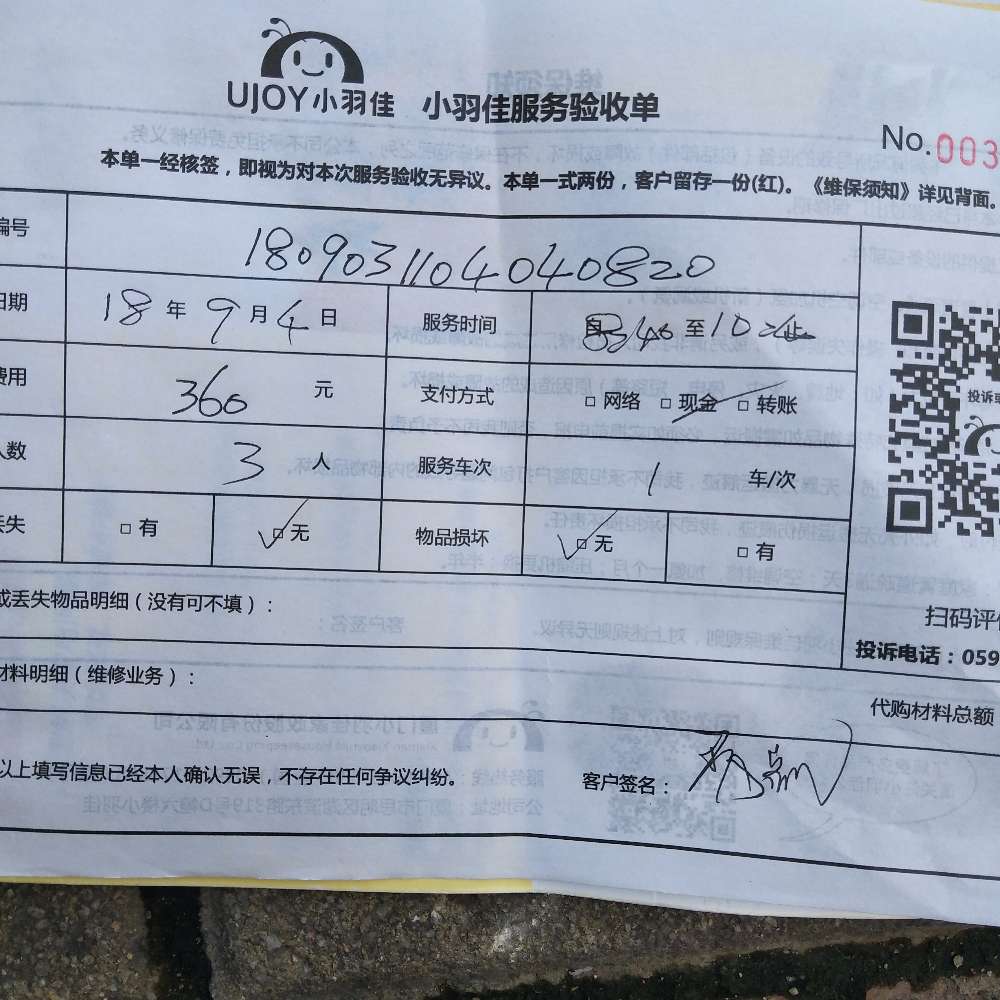 UJOY小羽佳 小羽佳服务验收单
No.003
本单一经核签，即视为对本次服务验收无异议。本单一式两份，客户留存一份(红)。《维保须知》详见背面。
编号 1809031104040820
日期 18 年 9 月 4 日 服务时间 自 8:40 至 10:21止
费用 360 元 支付方式 □ 网络 □ 现金 □ 转账
人数 3 人 服务车次 1 车/次
丢失 □ 有 □ 无 物品损坏 □ 无 □ 有
或丢失物品明细（没有可不填）：
扫码评价
投诉电话：059
材料明细（维修业务）：
代购材料总额
以上填写信息已经本人确认无误，不存在任何争议纠纷。 客户签名：